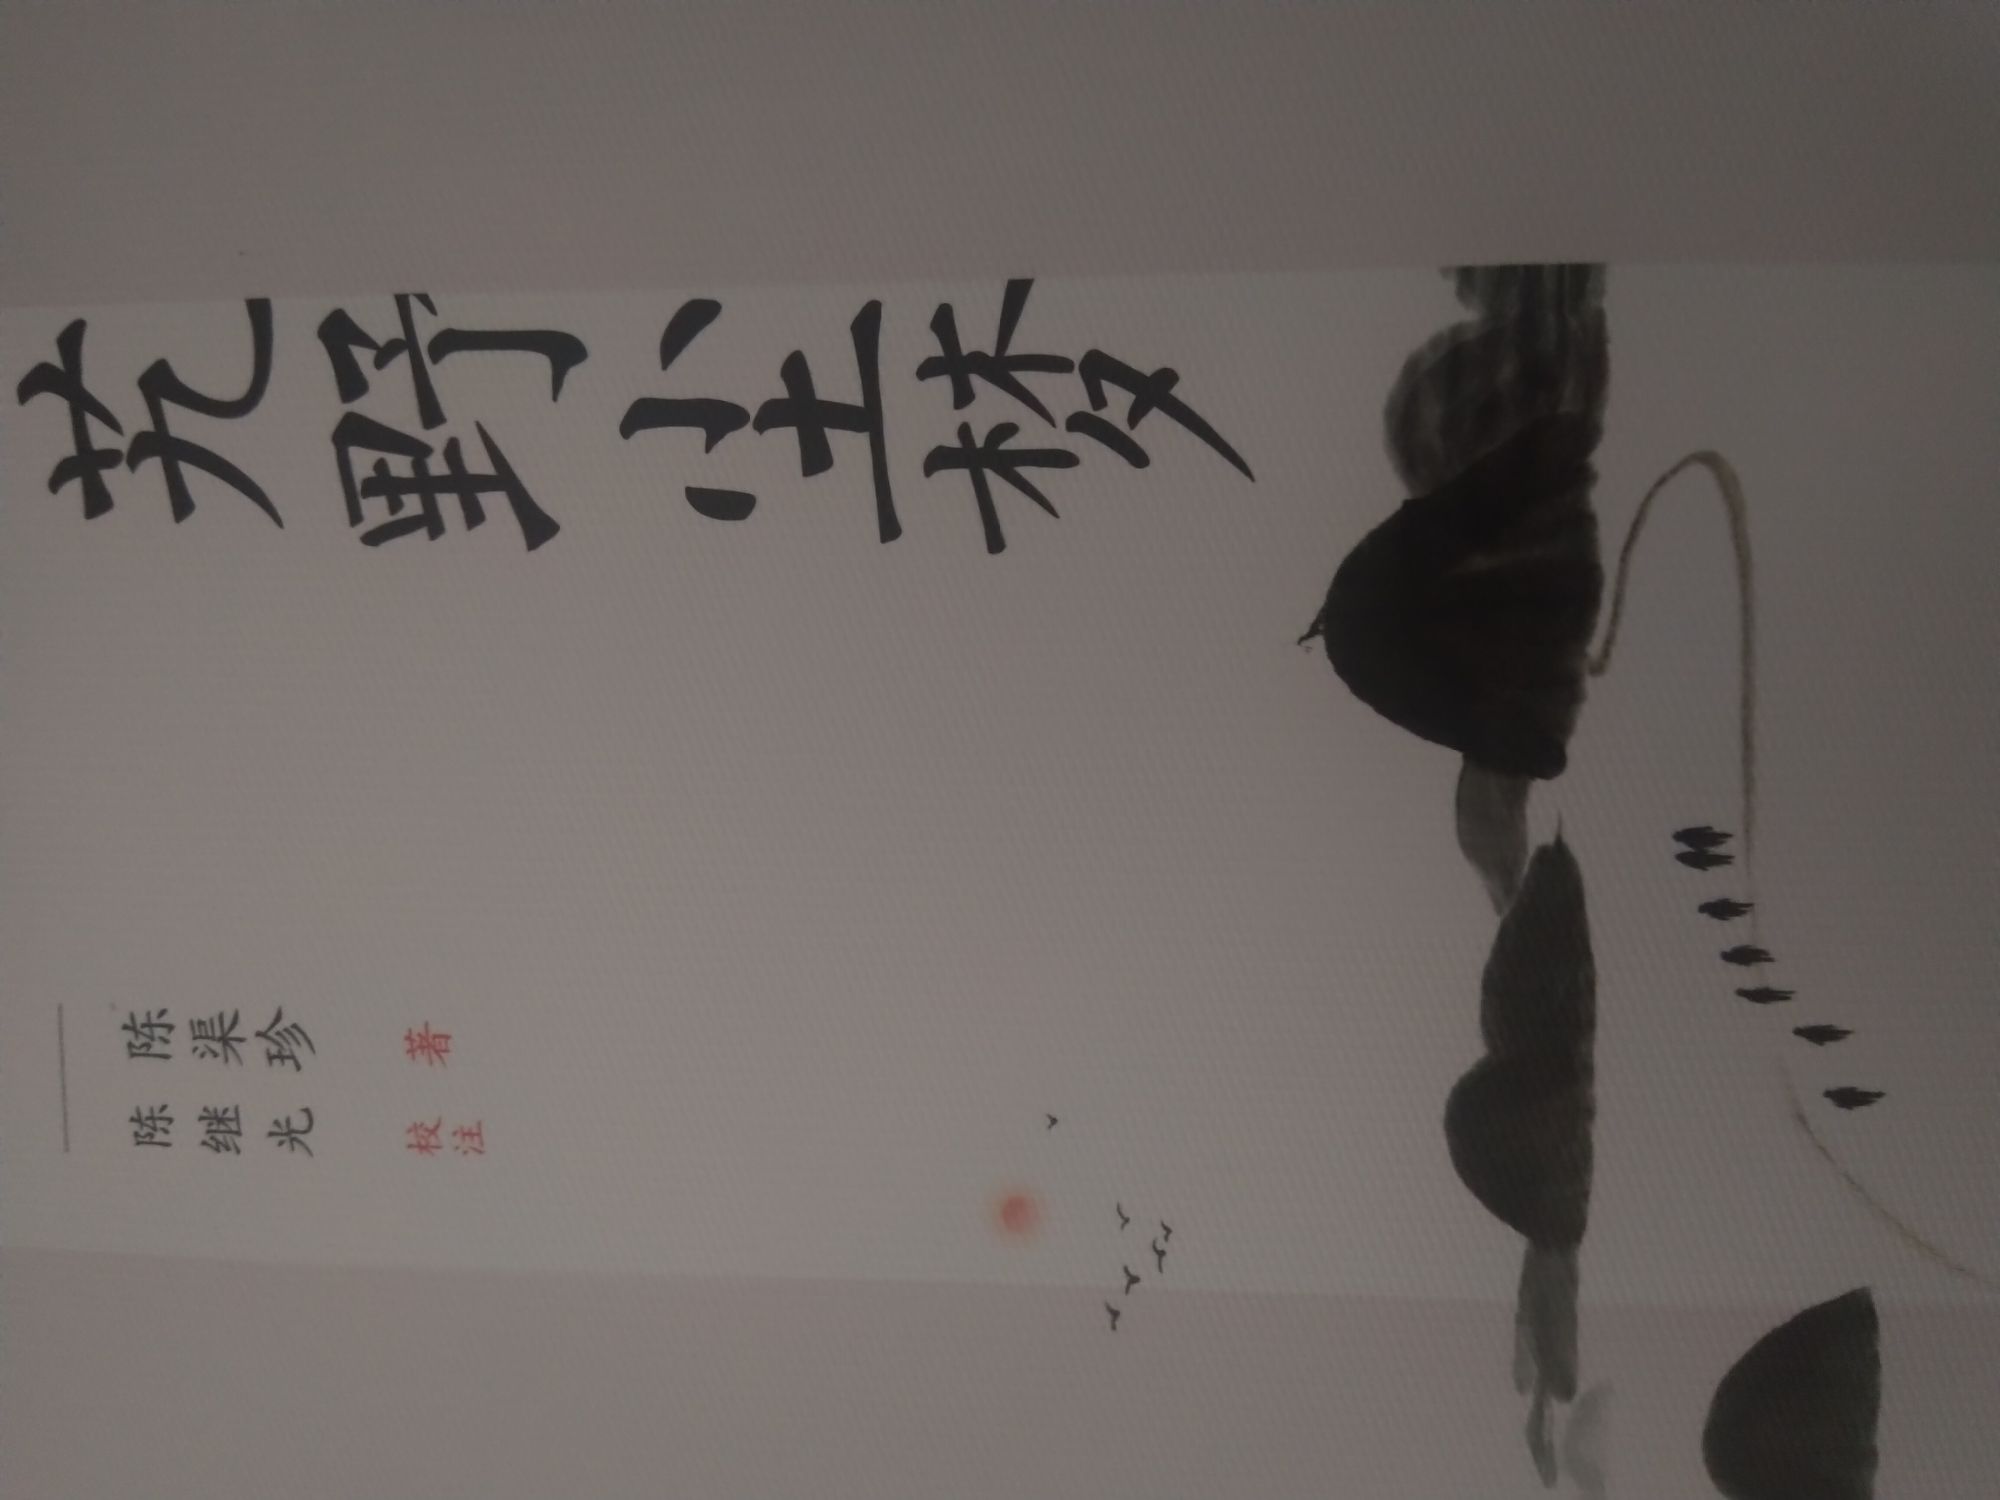 艽野尘梦
陈渠珍 著
陈继光 校注